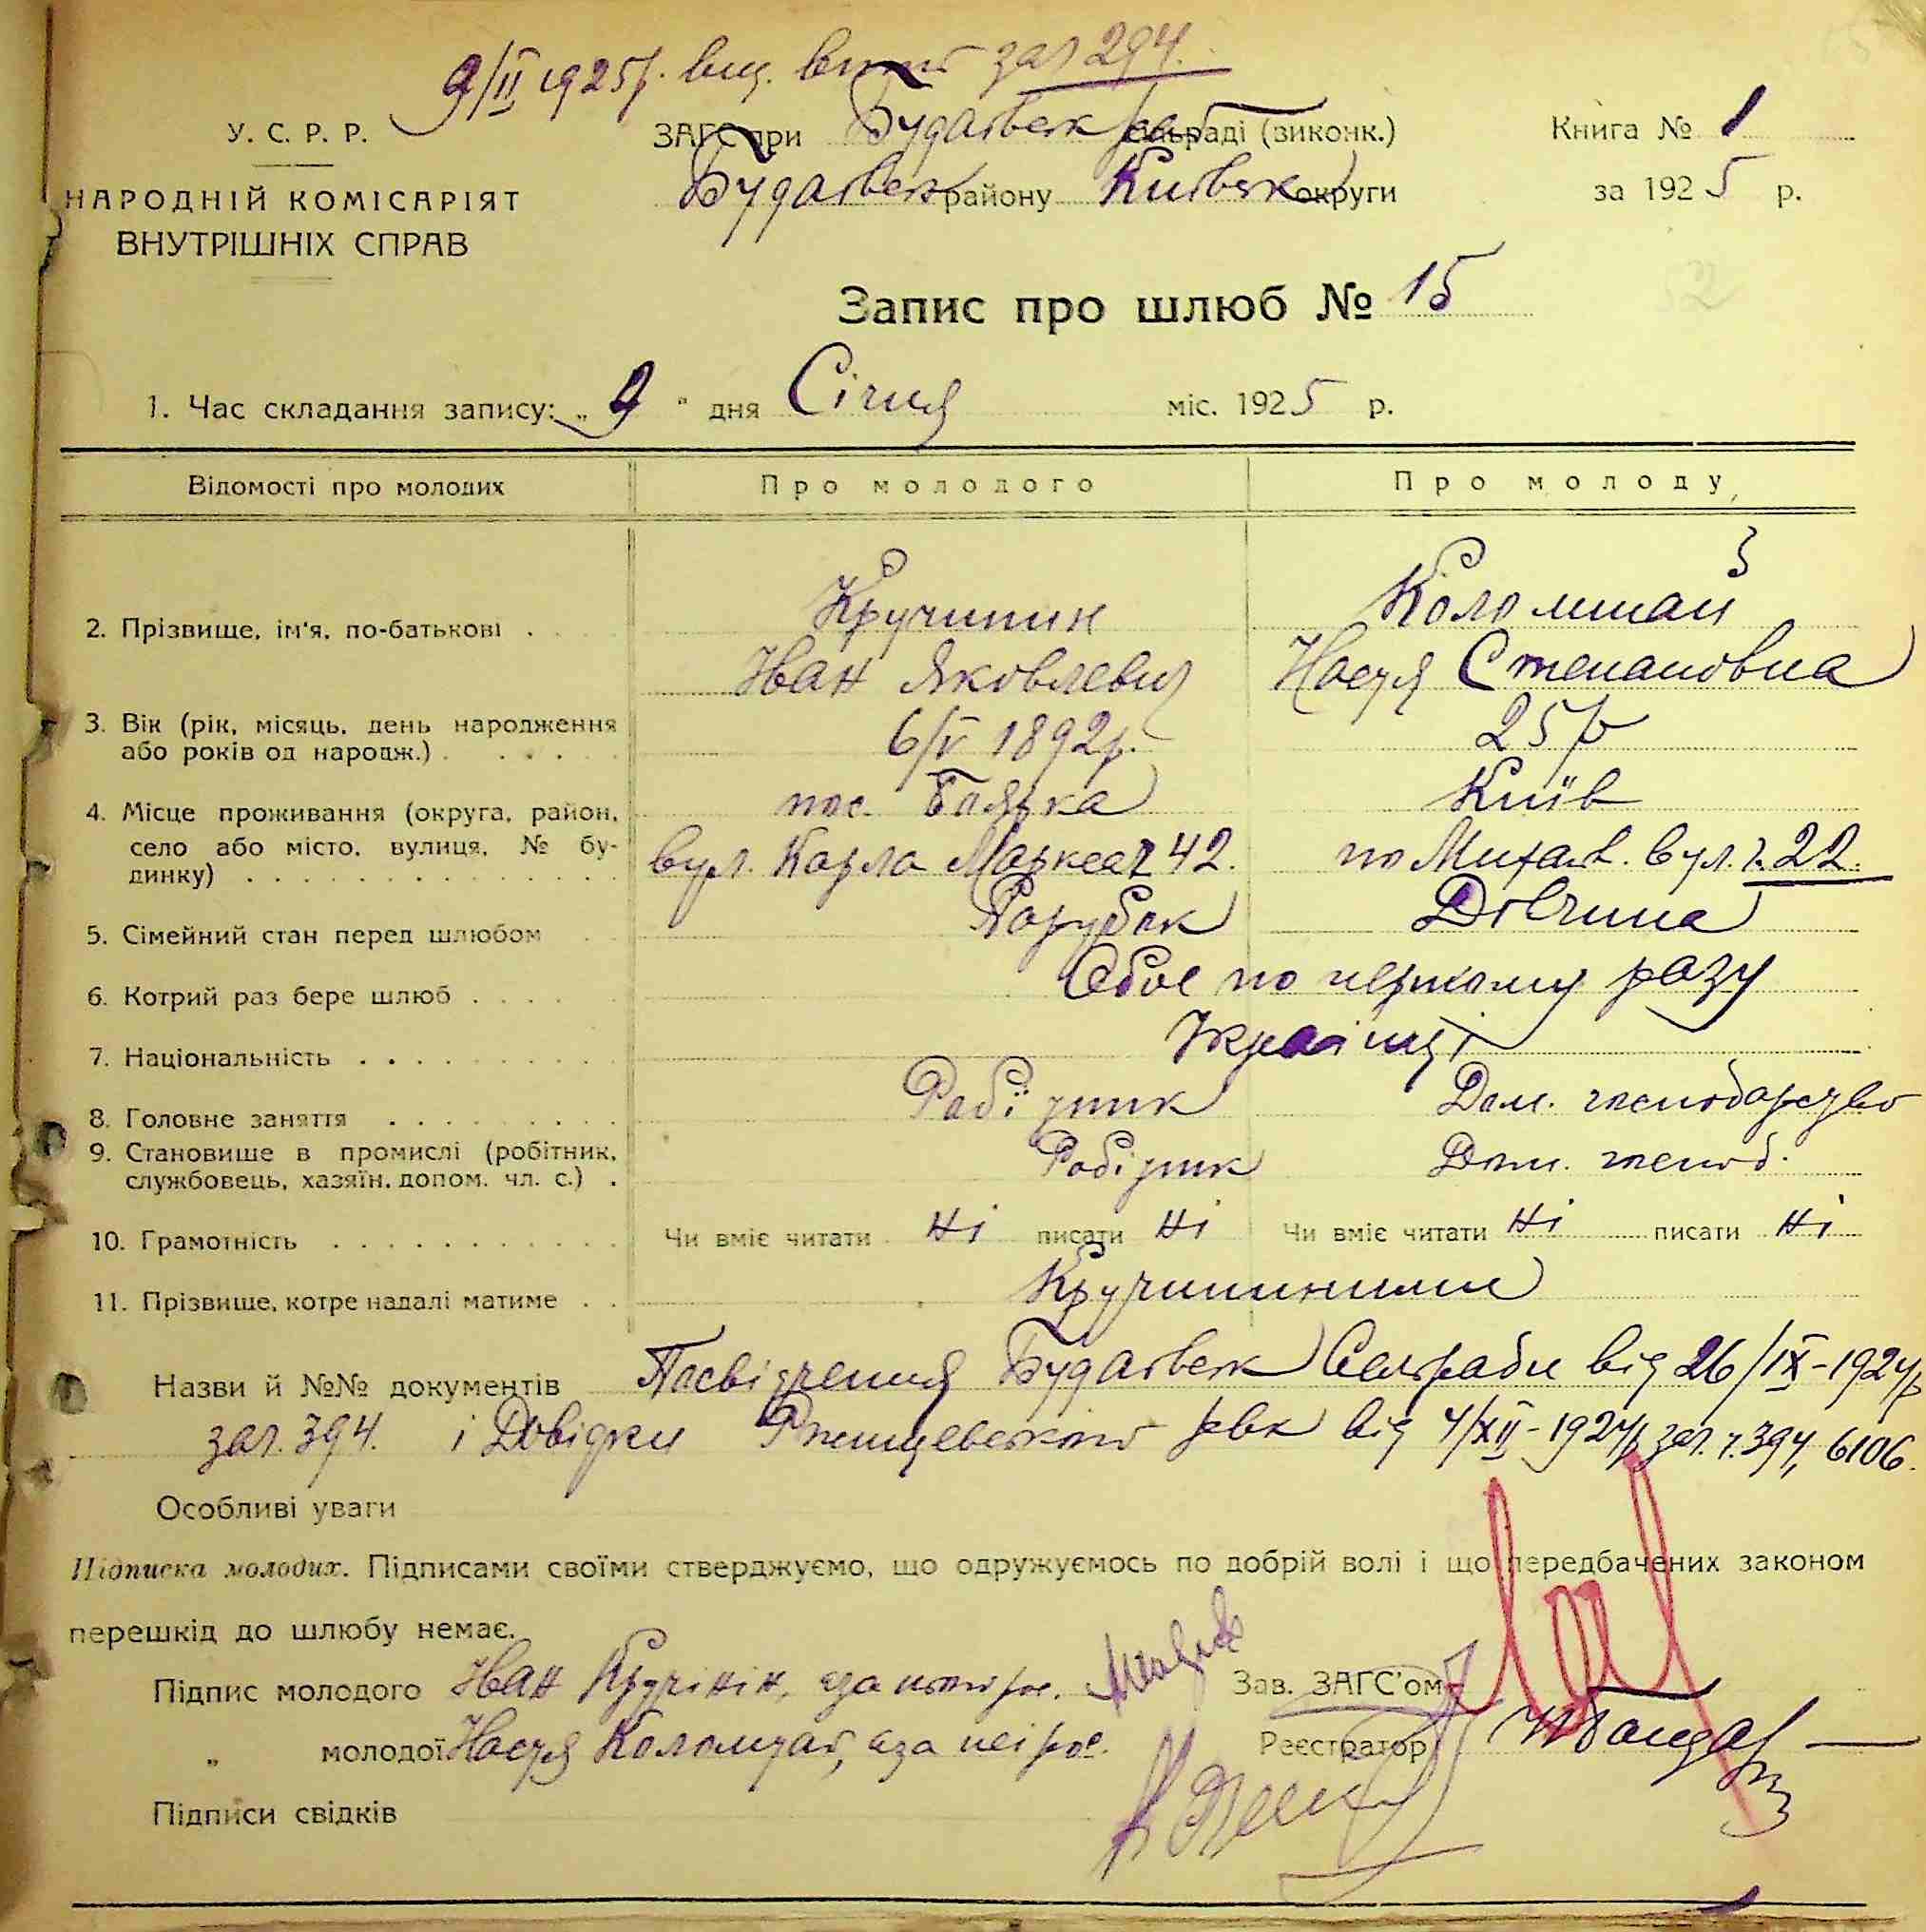 9/II 1925 р. вид. витяг за № 294.
У. С. Р. Р.
ЗАГС при Будаївськ сільраді (виконк.)
Книга № 1
НАРОДНІЙ КОМІСАРІЯТ
Будаївськ району Київськ округи
за 1925 р.
ВНУТРІШНІХ СПРАВ
Запис про шлюб № 15
52
1. Час складання запису: „ 9 " дня Січня міс. 1925 р.
Відомості про молодих
Про молодого
Про молоду
2. Прізвище, ім'я, по-батькові
Кручинин
Коломиай
Іван Яковлевич
Настя Степановна
3. Вік (рік, місяць, день народження
або років од народж.)
6/V 1892 р.
25 р
4. Місце проживання (округа, район,
село або місто, вулиця, № бу-
динку)
пос. Боярка
Київ
вул. Карла Маркса № 42.
по Михайл. вул. № 22.
5. Сімейний стан перед шлюбом
Парубок
Дівчина
6. Котрий раз бере шлюб
Обоє по першому разу
7. Національність
Українці
8. Головне заняття
Робітник
Дом. господарство
9. Становише в промислі (робітник,
службовець, хазяїн, допом. чл. с.)
Робітник
Дом. господ.
10. Грамотність
Чи вміє читати ні писати ні
Чи вміє читати ні писати ні
11. Прізвише, котре надалі матиме
Кручининими
Назви й №№ документів Посвідчення Будаївськ Сельради від 26/IX-1924 р
за № 394. і Довідки Ржищевського рвк від 4/XII-1924 р за № 394, 6106.
Особливі уваги
Підписка молодих. Підписами своїми стверджуємо, що одружуємось по добрій волі і що передбачених законом
перешкід до шлюбу немає.
Підпис молодого Іван Кручінін, а за нього рос.
Зав. ЗАГС'ом
„ молодої Настя Коломиай, а за неї рос.
Реєстратор
Підписи свідків